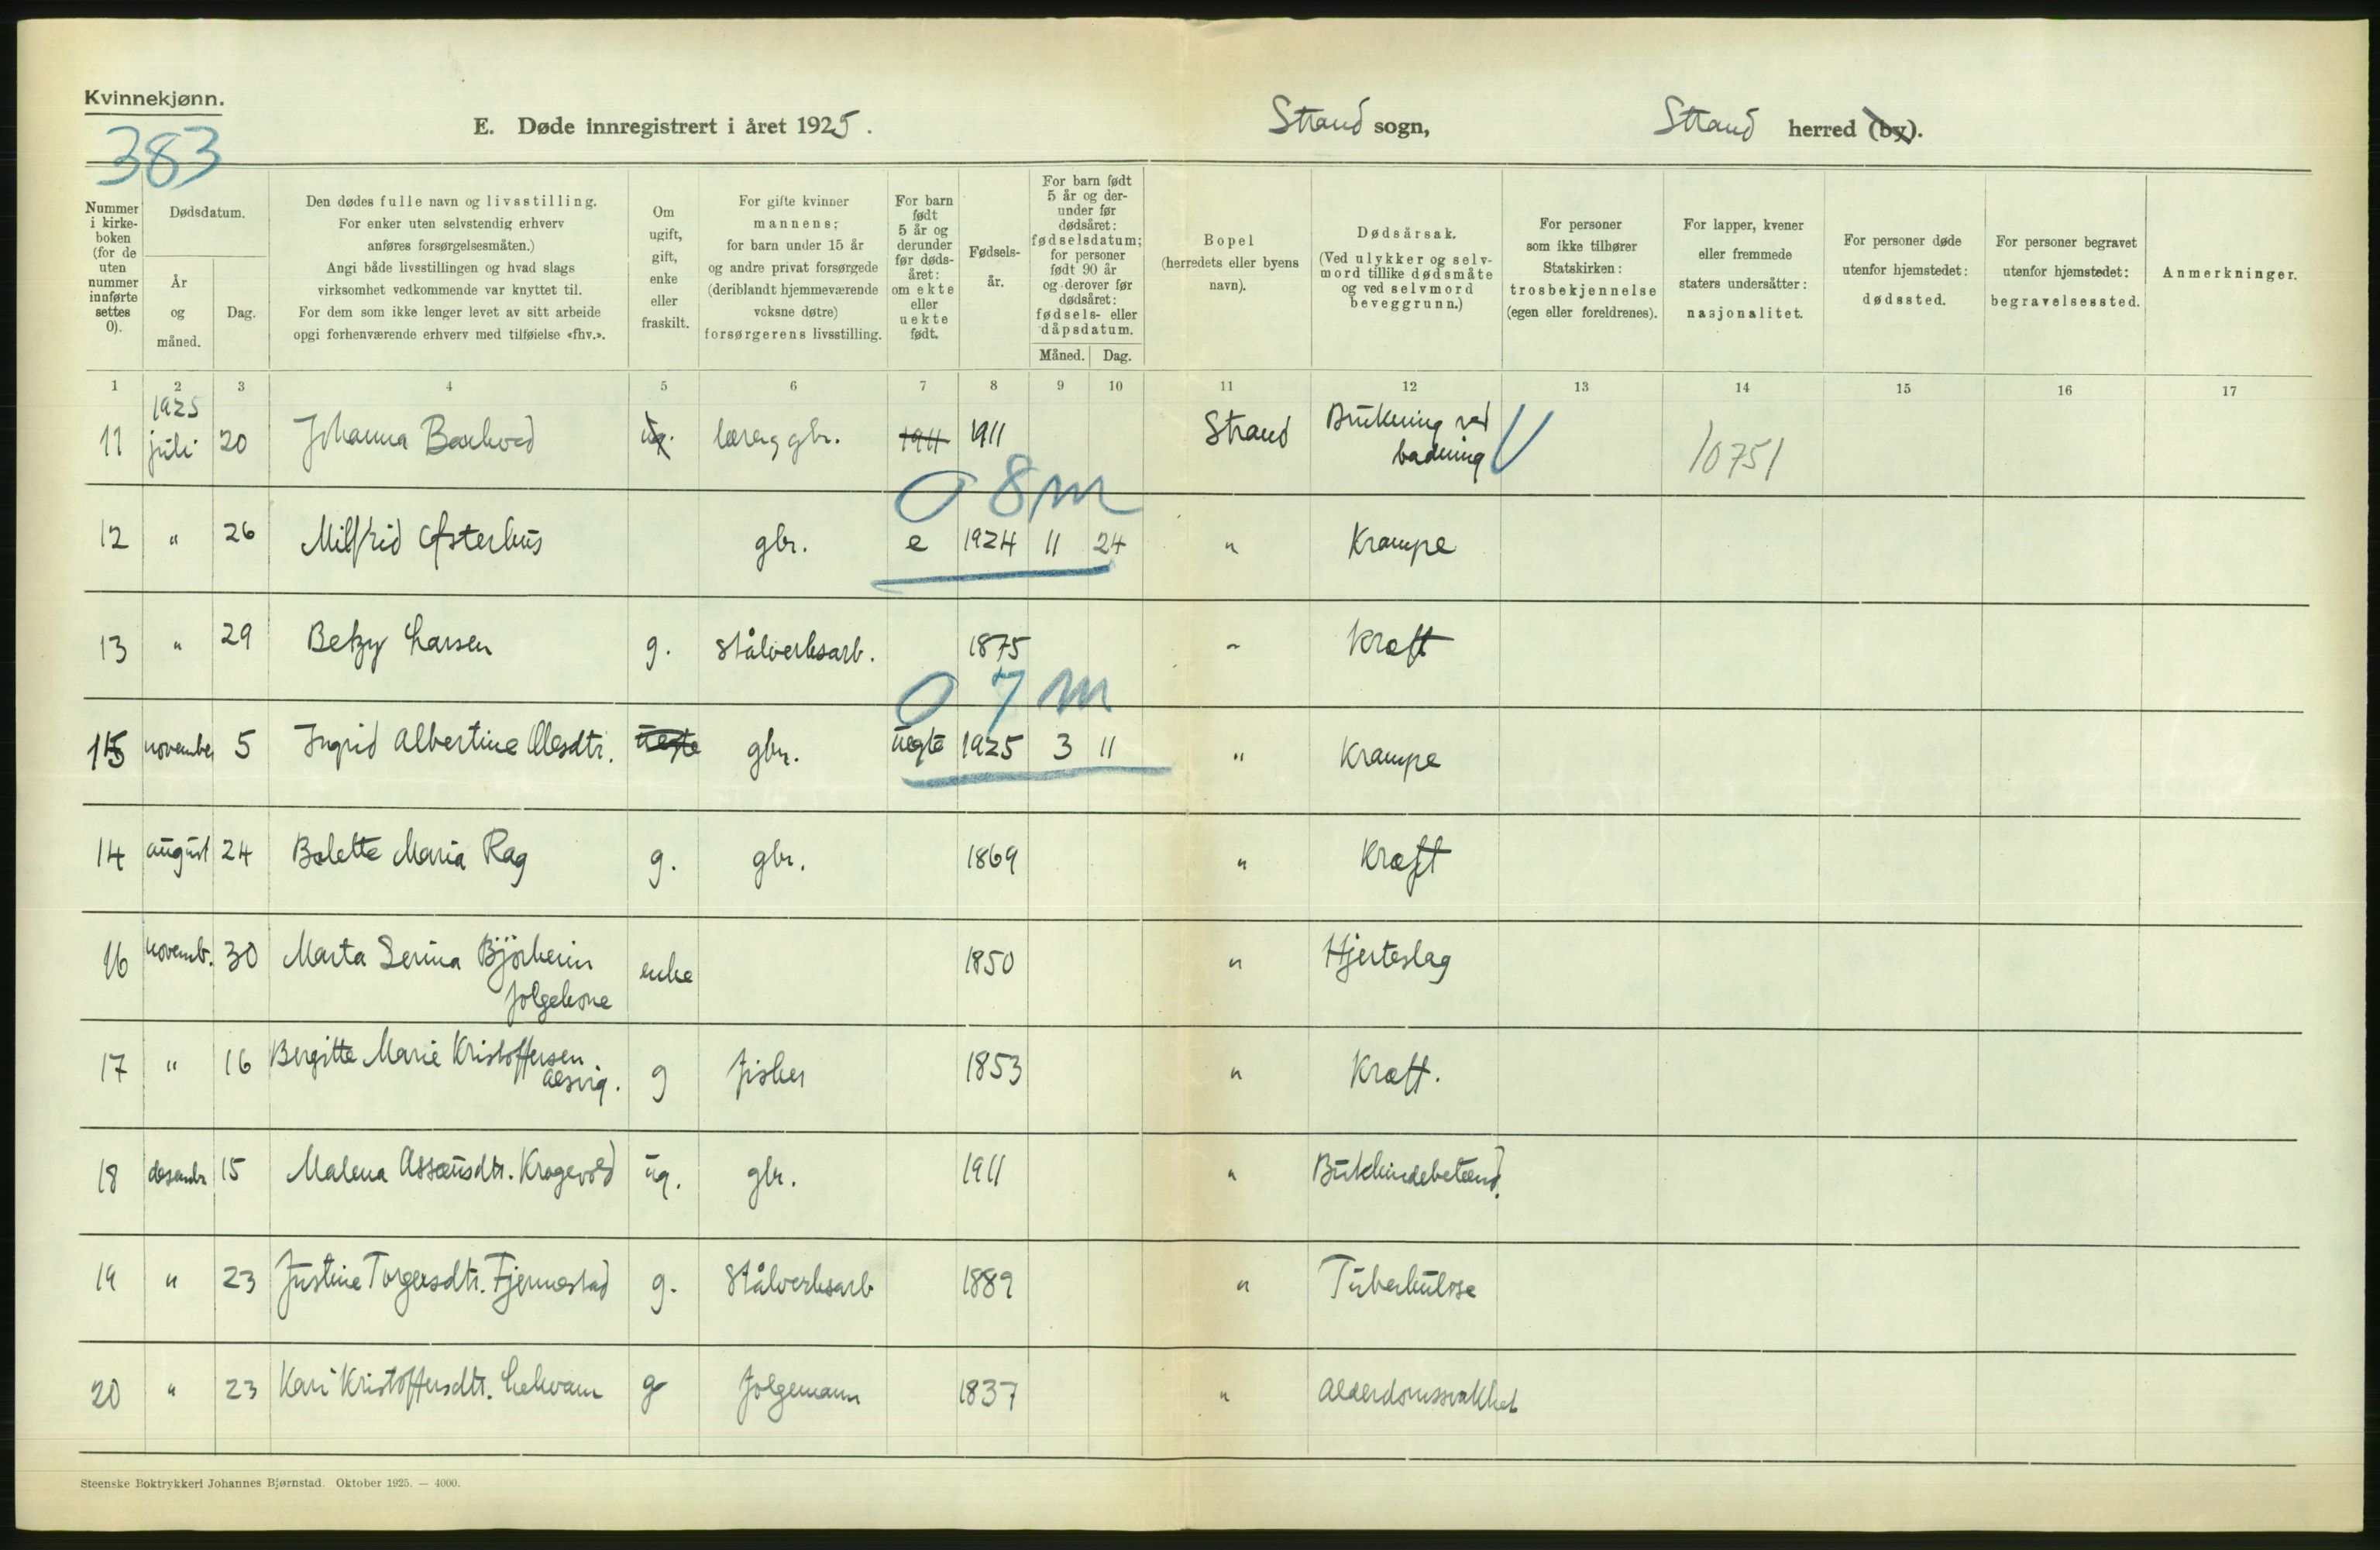 Kvinnekjønn.
383
E. Døde innregistrert i året 1925.
Strand sogn,
Strand herred (by).
Nummer i kirke-boken (for de uten nummer innførte settes 0).
Dødsdatum.
År og måned.
Dag.
Den dødes fulle navn og livsstilling.
For enker uten selvstendig erhverv
anføres forsørgelsesmåten.)
Angi både livsstillingen og hvad slags
virksomhet vedkommende var knyttet til.
For dem som ikke lenger levet av sitt arbeide
opgi forhenværende erhverv med tilføielse «fhv.».
Om ugift, gift, enke eller fraskilt.
For gifte kvinner
mannens;
for barn under 15 år
og andre privat forsørgede
(deriblandt hjemmeværende
voksne døtre)
forsørgerens livsstilling.
For barn født 5 år og derunder før døds-året: om ekte eller uekte født.
Fødsels-år.
For barn født 5 år og der-under før dødsåret: fødselsdatum; for personer født 90 år og derover før dødsåret: fødsels- eller dåpsdatum.
Måned. Dag.
Bopel
(herredets eller byens
navn).
Dødsårsak.
(Ved ulykker og selv-
mord tillike dødsmåte
og ved selvmord
beveggrunn.)
For personer
som ikke tilhører
Statskirken:
trosbekjennelse
(egen eller foreldrenes).
For lapper, kvener
eller fremmede
staters undersåtter:
nasjonalitet.
For personer døde
utenfor hjemstedet:
dødssted.
For personer begravet
utenfor hjemstedet:
begravelsessted.
Anmerkninger.
1 2 3 4 5 6 7 8 9 10 11 12 13 14 15 16 17
1925
11 juli 20 Johanna ug. gbr. 1911 1911 Strand Drukning ved
badning 10751
0 8 m
12 " 26 Milfrid Østerhus gbr. e 1924 11 24 " Krampe
13 " 29 Betzy Larsen g. stålverksarb. 1875 " Kræft
0 7 m
15 november 5 Ingrid Albertine Olesdtr. uegte gbr. uegte 1925 3 11 " Krampe
14 august 24 Bolette Maria Rag g. gbr. 1869 " Kræft
16 novemb. 30 Marta Serina enke 1850 " Hjerteslag
folgekone
17 " 16 Bergitte Marie Kristoffersen g fisker 1853 " Kræft.
18 desembr 15 Malena Krogevold ug. gbr. 1911 " Bukhindebetænd.
19 " 23 Justine Torgersdtr. Fjermestad g. Stålverksarb 1889 " Tuberkulose
20 " 23 Kari Kristoffersdtr. Lekvam g folgemann 1837 " Alderdomssvakhet
Steenske Boktrykkeri Johannes Bjørnstad. Oktober 1925. — 4000.